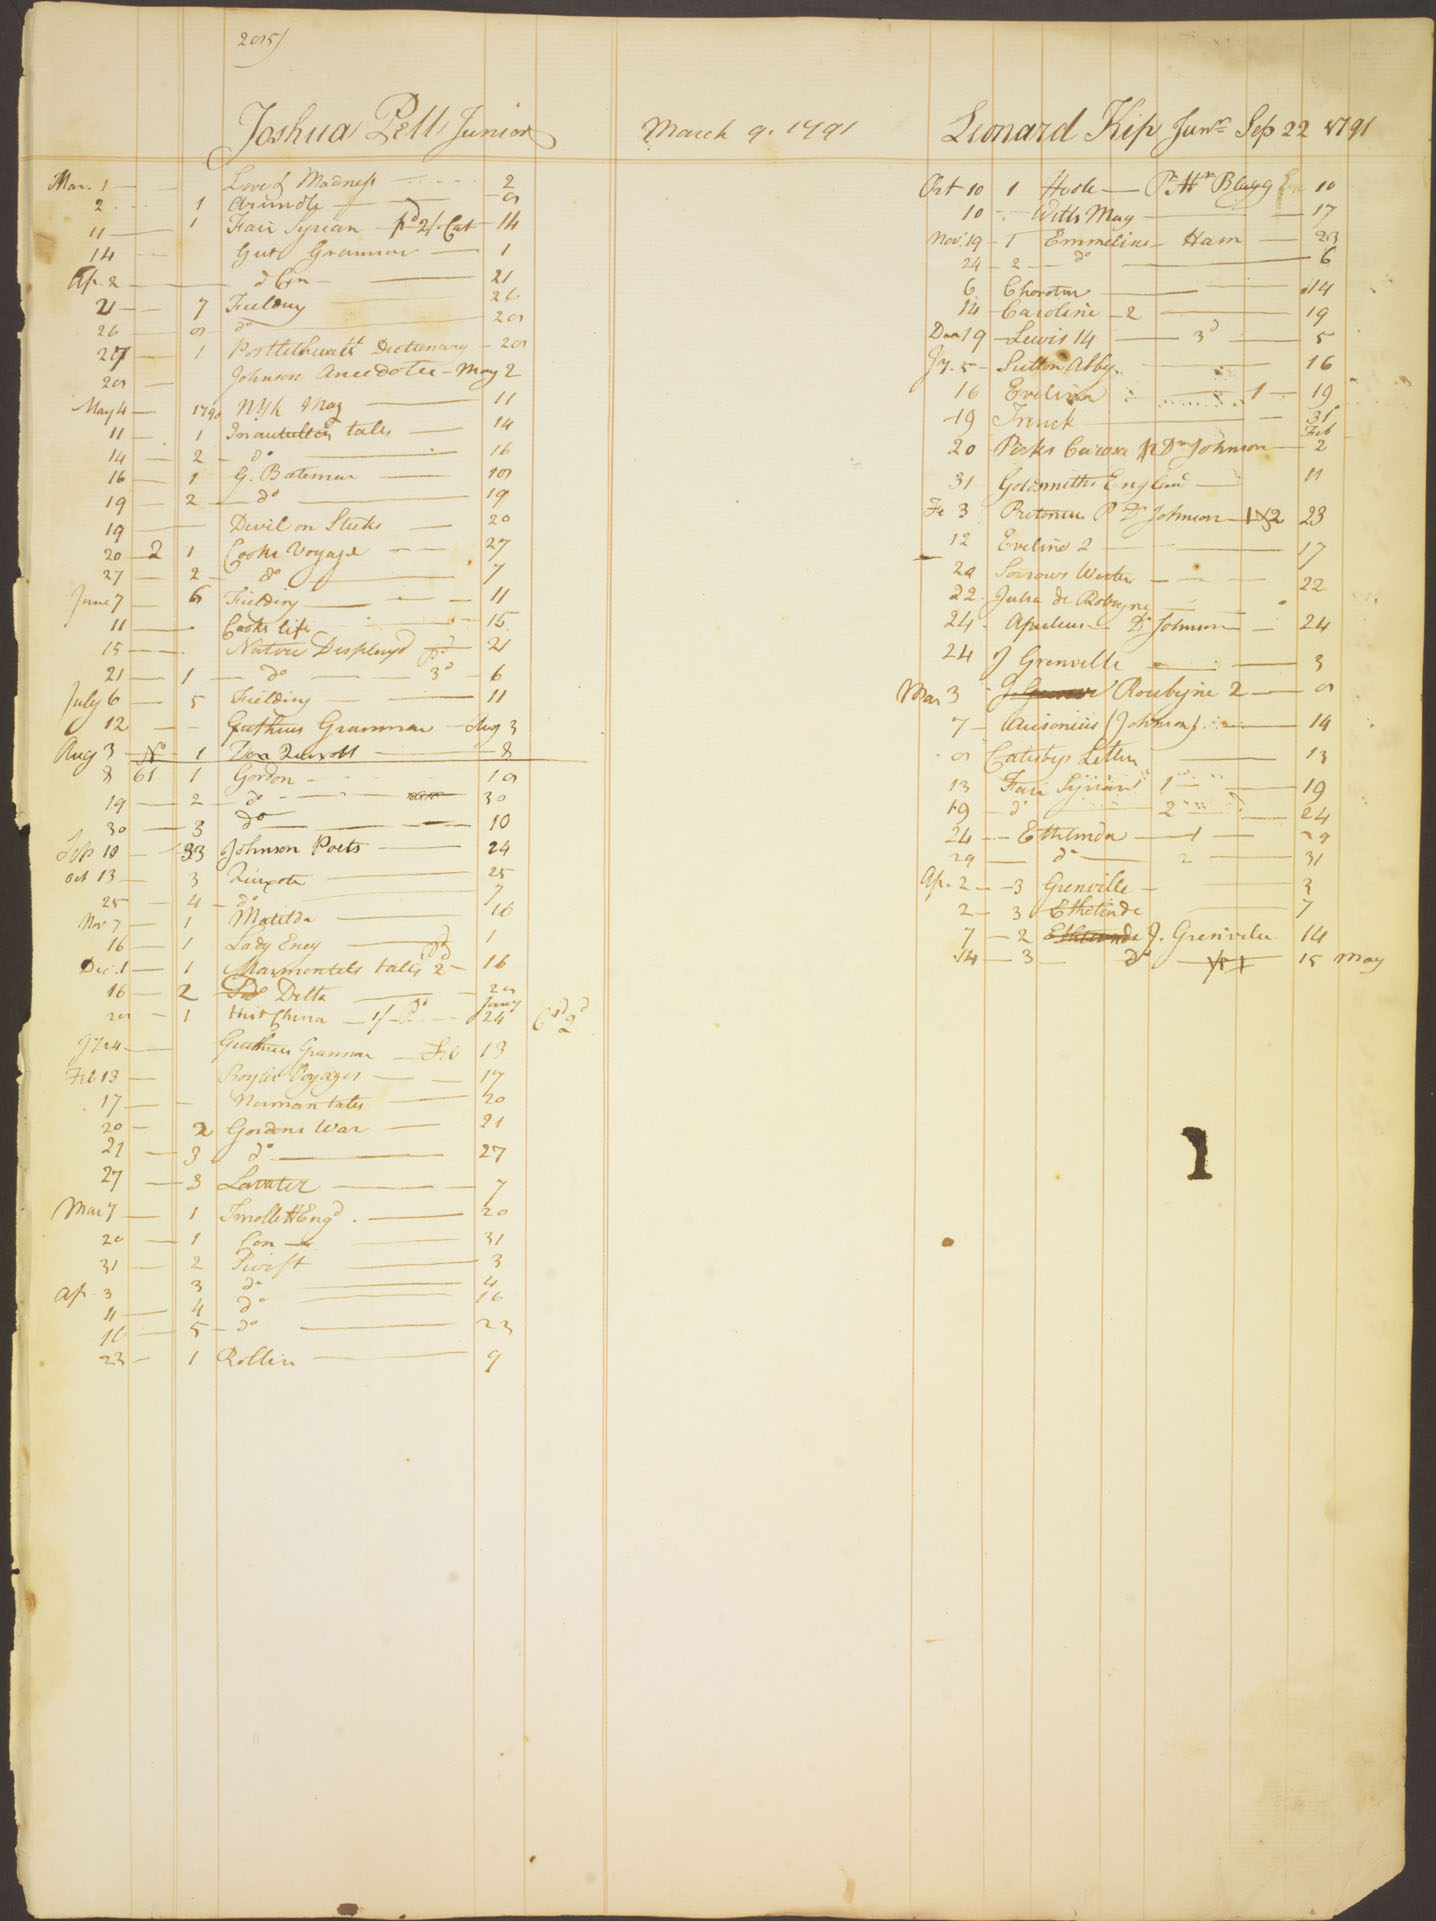 205/
Joshua Pell Junior March 9. 1791
Mar. 1 Love & Madness 2
2 1 Arundle 8
11 1 Fair Syrian pd 2/. Cat 14
14 Gut Grammar 1
Ap. 2 do Con 21
21 7 Fielding 26
26 8 do 28
27 1 Postlethwaits Dictionary 28
28 Johnson Anecdotes May 2
May 4 1790 NYk Mag 11
11 1 tales 14
14 2 do 16
16 1 G. Bateman 18
19 2 do 19
19 Devil on Sticks 20
20 2 1 Cooks Voyage 27
27 2 do 7
June 7 6 Fielding 11
11 Cooks life 15
15 Nature Displayd pd 21
21 1 do 3d 6
July 6 5 Fielding 11
12 Guthries Grammar Aug 3
Aug 3 No 1 Don Quixott 8
8 61 1 Gordon 18
19 2 do 30
30 3 do 10
Sep 10 33 Johnson Poets 24
Oct 13 3 Quixote 25
25 4 do 7
Nov 7 1 Matilda 16
16 1 Lady 1
Dec. 1 1 Marmontels tales 2 16
16 2 Delta 28
28 1 Hist China 1/ Pd Jany 24
Jy 24 Guthries Grammar Feb 13
Feb 13 Boyles Voyages 17
17 Norman tales 20
20 2 Gordons War 21
21 3 do 27
27 3 Lavater 7
Mar 7 1 Smollett Engd. 20
20 1 Con 31
31 2 Swift 3
Ap 3 3 do 4
11 4 do 16
16 5 do 23
23 1 Rollin 9
Leonard Kip Junr Sep 22 1791
Oct 10 1 Hoole Pr Blagg 10
10 Witts Mag 17
Nov. 19 1 Emmeline Ham 23
24 2 do 6
6 14
14 Caroline 2 19
19 Lewis 14 3d 5
Jy. 5 Sutton Abby 16
16 Evelina 1 19
19 Trenck 31
20 Johnson Feb 2
31 Goldsmiths England 11
Fe 3 P Dr Johnson 1 & 2 23
12 Eveline 2 17
Sorrows Werter
22 Julia de Robigne 22
24 Apuleius Dr Johnson 24
24 J Grenville 3
Mar 3 Roubigne 2 8
7 Ausonius (Johnson) 14
8 Catesbys Letters 13
13 Fair Syrian 1 19
19 do 2 24
24 Ethelinda 1 29
29 do 2 31
Ap. 2 3 Grenville 3
2 3 Ethelinde 7
7 2 J. Grenville 14
14 3 do 15 May
1